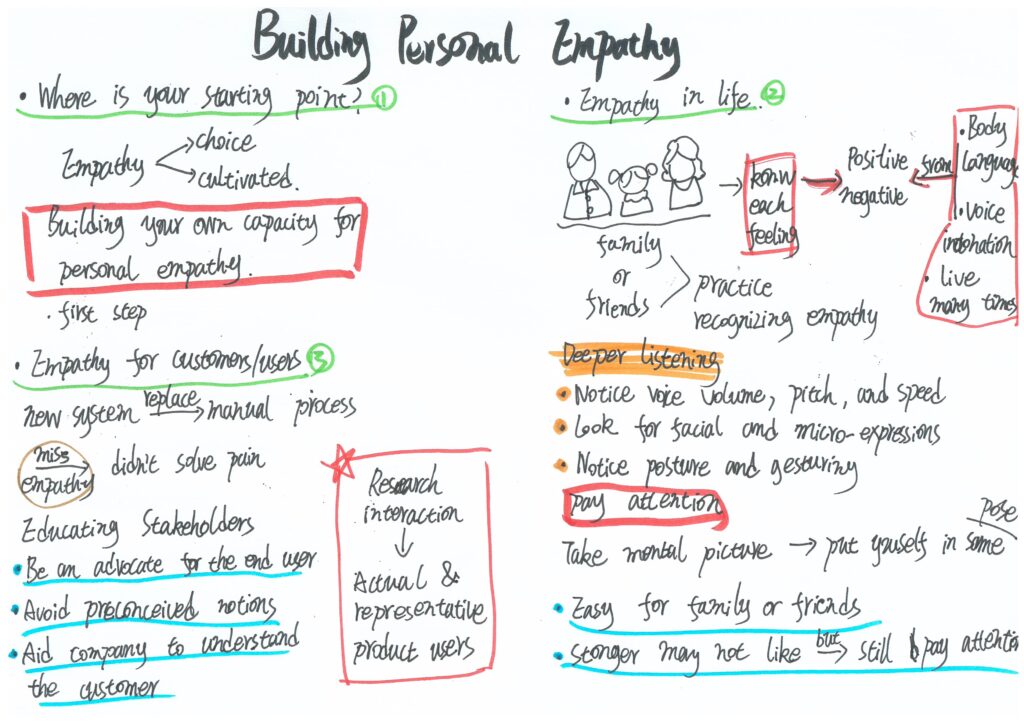 Building Personal Empathy
• Where is your starting point? ①
Empathy
choice
cultivated.
Building your own capacity for
personal empathy.
· first step
• Empathy for customers/users ③
new system replace manual process
miss
empathy
didn't solve pain
Educating Stakeholders
• Be an advocate for the end user
• Avoid preconceived notions
• Aid company to understand
the customer
Research
interaction
Actual &
representative
product users
• Empathy in life. ②
family
or
friends
each
feeling
Positive
negative
from
• Body
Language
• Voice
• live
many times
practice
recognizing empathy
Deeper listening
• Notice voice volume, pitch, and speed
• Look for facial and micro-expressions
• Notice posture and gesturing
pay attention
Take mental picture → put youself in same
pose
• Easy for family or friends
• Stonger may not like but → still pay attention